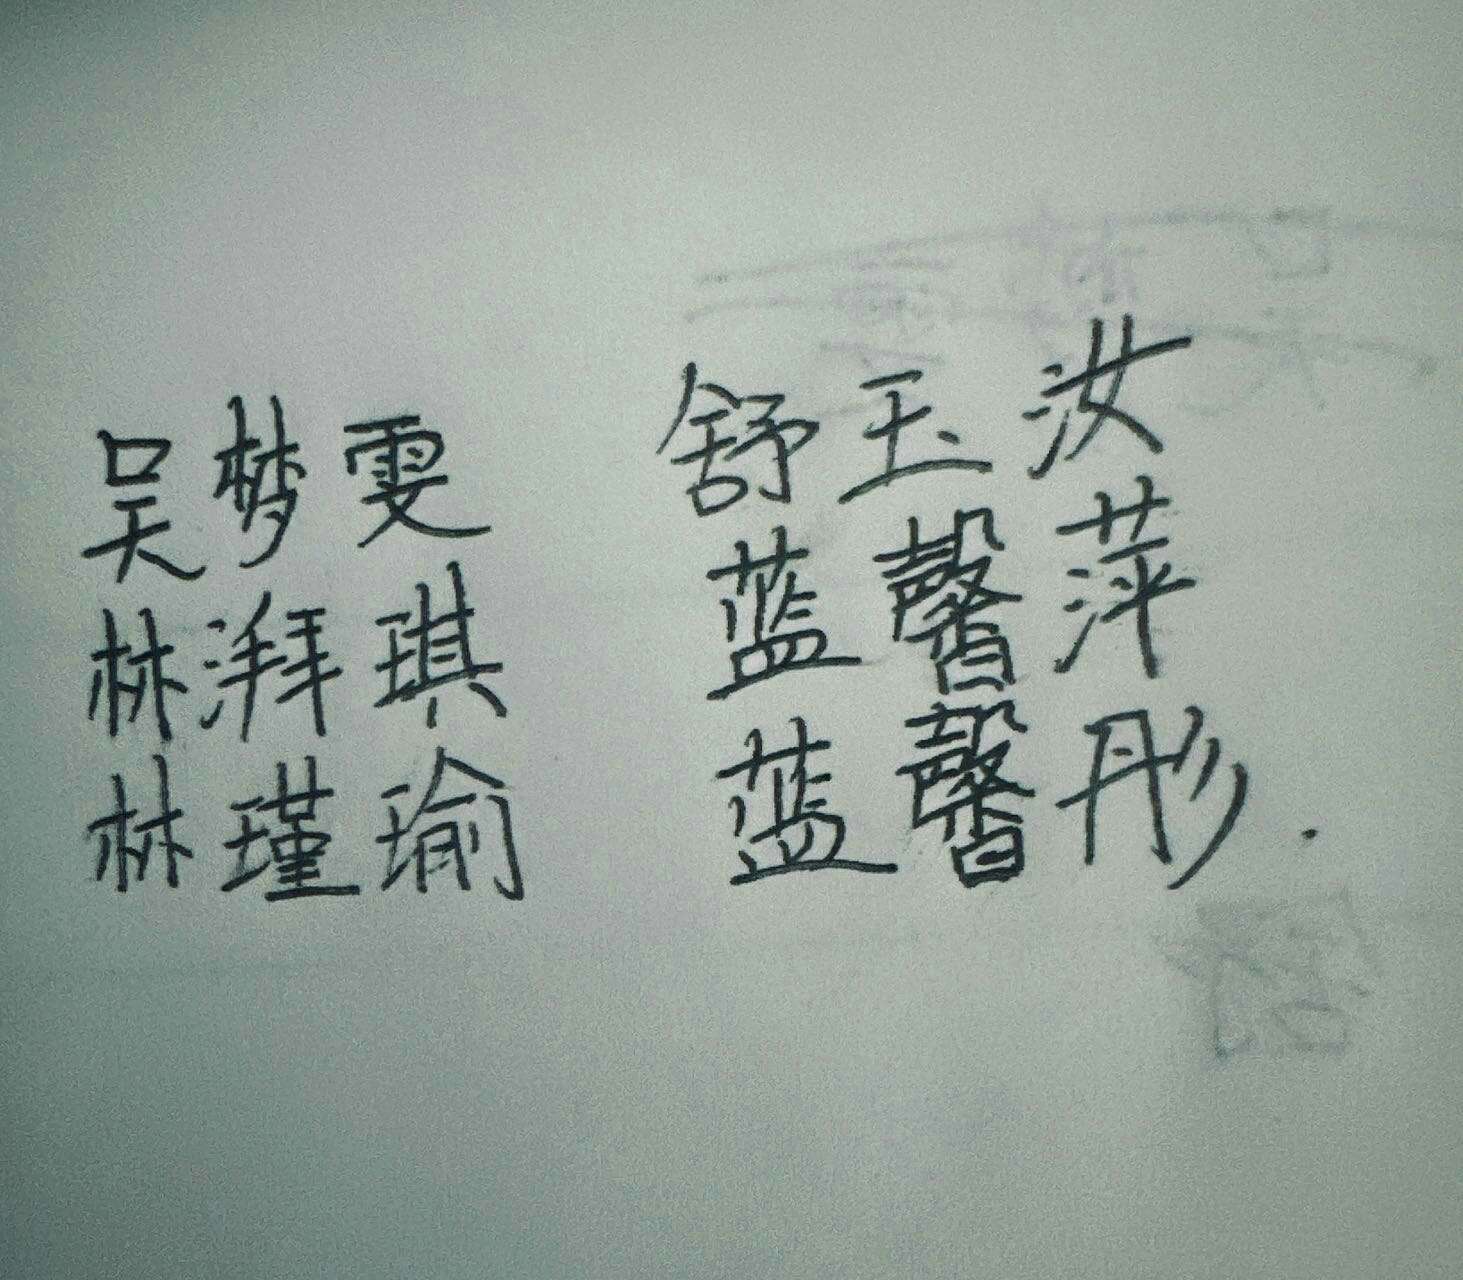 吴梦雯 舒玉汝
林湃琪 蓝馨萍
林瑾瑜 蓝馨彤.